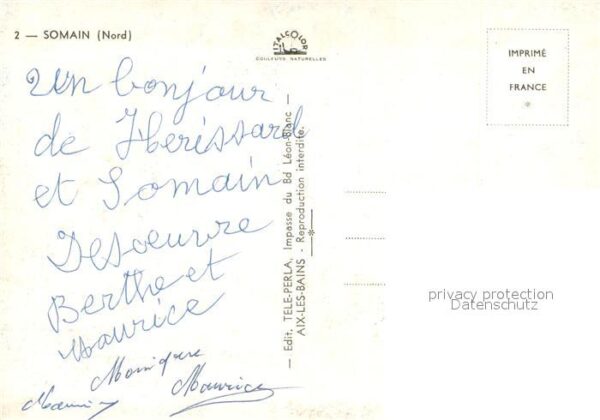 2 — SOMAIN (Nord)
ITALCOLOR
COULEURS NATURELLES
IMPRIMÉ
EN
FRANCE
Un bonjour
de Hérissard
et Somain
Desoeuvre
Berthe et
Maurice
Monique
Maurice
— Edit. TELE-PERLA, Impasse du Bd Léon-Blanc —
AIX-LES-BAINS - Reproduction interdite.
privacy protection
Datenschutz